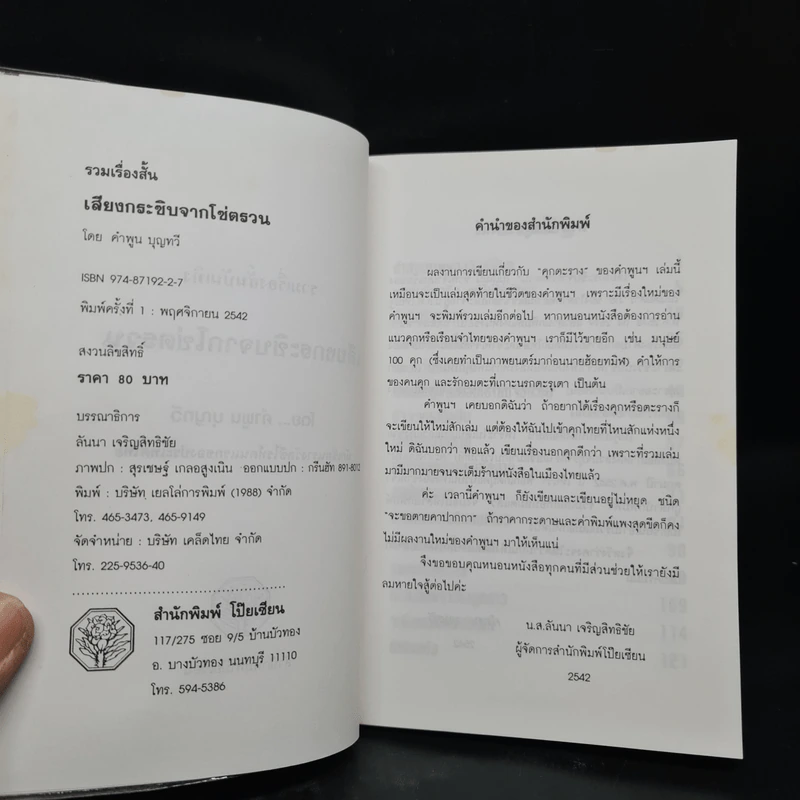 รวมเรื่องสั้น
เสียงกระซิบจากโซ่ตรวน
โดย คำพูน บุญทวี
ISBN 974-87192-2-7
พิมพ์ครั้งที่ 1 : พฤศจิกายน 2542
สงวนลิขสิทธิ์
ราคา 80 บาท
บรรณาธิการ
ลันนา เจริญสิทธิชัย
ภาพปก : สุรเชษฐ์ เกลอสูงเนิน ออกแบบปก : กรีนฮัท 891-8012
พิมพ์ : บริษัท เยลโล่การพิมพ์ (1988) จำกัด
โทร. 465-3473, 465-9149
จัดจำหน่าย : บริษัท เคล็ดไทย จำกัด
โทร. 225-9536-40
สำนักพิมพ์ โป๊ยเซียน
117/275 ซอย 9/5 บ้านบัวทอง
อ. บางบัวทอง นนทบุรี 11110
โทร. 594-5386
คำนำของสำนักพิมพ์
ผลงานการเขียนเกี่ยวกับ "คุกตะราง" ของคำพูนฯ เล่มนี้
เหมือนจะเป็นเล่มสุดท้ายในชีวิตของคำพูนฯ เพราะมีเรื่องใหม่ของ
คำพูนฯ จะพิมพ์รวมเล่มอีกต่อไป หากหนอนหนังสือต้องการอ่าน
แนวคุกหรือเรือนจำไทยของคำพูนฯ เราก็มีไว้ขายอีก เช่น มนุษย์
100 คุก (ซึ่งเคยทำเป็นภาพยนตร์มาก่อนนายฮ้อยทมิฬ) คำให้การ
ของคนคุก และรักอมตะที่เกาะนรกตะรุเตา เป็นต้น
คำพูนฯ เคยบอกดิฉันว่า ถ้าอยากได้เรื่องคุกหรือตะรางก็
จะเขียนให้ใหม่สักเล่ม แต่ต้องให้ฉันไปเข้าคุกไทยที่ไหนสักแห่งหนึ่ง
ใหม่ ดิฉันบอกว่า พอแล้ว เขียนเรื่องนอกคุกดีกว่า เพราะที่รวมเล่ม
มามีมากมายจนจะเต็มร้านหนังสือในเมืองไทยแล้ว
ค่ะ เวลานี้คำพูนฯ ก็ยังเขียนและเขียนอยู่ไม่หยุด ชนิด
"จะขอตายคาปากกา" ถ้าราคากระดาษและค่าพิมพ์แพงสุดขีดก็คง
ไม่มีผลงานใหม่ของคำพูนฯ มาให้เห็นแน่
จึงขอขอบคุณหนอนหนังสือทุกคนที่มีส่วนช่วยให้เรายังมี
ลมหายใจสู้ต่อไปค่ะ
น.ส.ลันนา เจริญสิทธิชัย
ผู้จัดการสำนักพิมพ์โป๊ยเซียน
2542